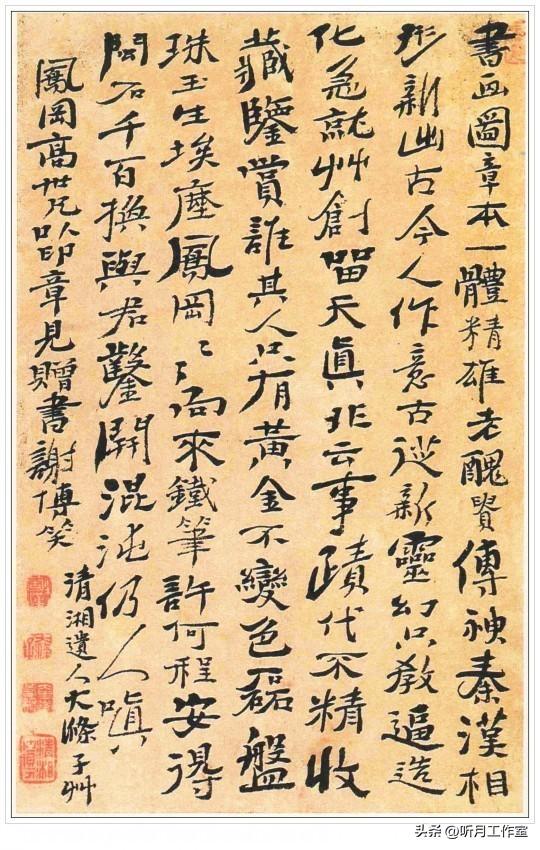 書画圖章本一體精雄老醜貴傳神秦漢相
形新出古今人作意古從新靈幻只教逼造
化急就艸創留天真非云事蹟代不精收
藏鑒賞誰其人只有黃金不變色磊盤
珠玉生埃塵鳳岡〻〻向來鐵筆許何程安得
閒石千百換與君鑿開混沌仍人嗔
鳳岡高世兄以印章見贈書謝博笑
清湘遺人大滌子艸
头条 @听月工作室